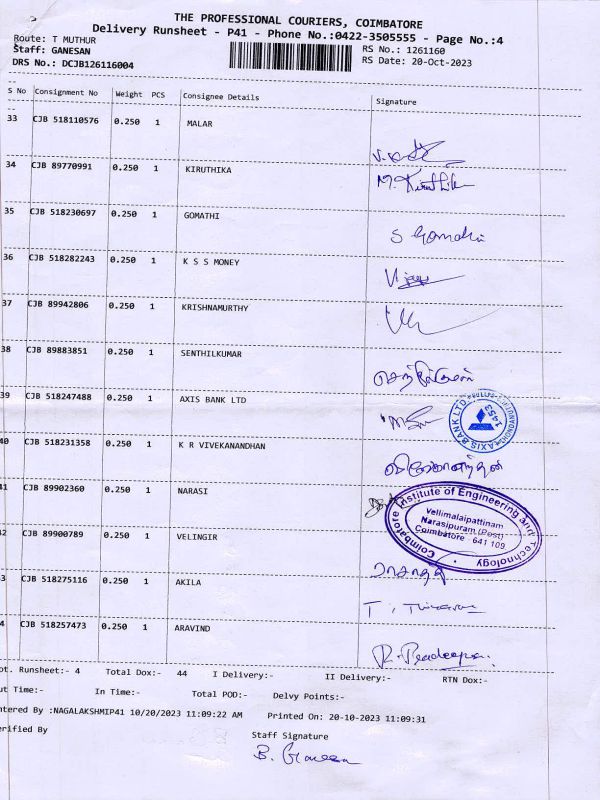 THE PROFESSIONAL COURIERS, COIMBATORE
Delivery Runsheet - P41 - Phone No.:0422-3505555 - Page No.:4
Route: T MUTHUR RS No.: 1261160
Staff: GANESAN RS Date: 20-Oct-2023
DRS No.: DCJB126116004
S No Consignment No Weight PCS Consignee Details Signature
33 CJB 518110576 0.250 1 MALAR
34 CJB 89770991 0.250 1 KIRUTHIKA M. Kiruthika
35 CJB 518230697 0.250 1 GOMATHI S Gomathi
36 CJB 518282243 0.250 1 K S S MONEY Vijay
37 CJB 89942806 0.250 1 KRISHNAMURTHY
38 CJB 89883851 0.250 1 SENTHILKUMAR செந்தில்குமார்
39 CJB 518247488 0.250 1 AXIS BANK LTD
AXIS BANK LTD 1453
40 CJB 518231358 0.250 1 K R VIVEKANANDHAN விவேகானந்தன்
41 CJB 89902360 0.250 1 NARASI
Coimbatore Institute of Engineering and Technology
Vellimalaipattinam
Narasipuram (Post)
Coimbatore - 641 109
42 CJB 89900789 0.250 1 VELINGIR
43 CJB 518275116 0.250 1 AKILA
44 CJB 518257473 0.250 1 ARAVIND R. Pradeepa
ot. Runsheet:- 4 Total Dox:- 44 I Delivery:- II Delivery:- RTN Dox:-
ut Time:- In Time:- Total POD:- Delvy Points:-
ntered By :NAGALAKSHMIP41 10/20/2023 11:09:22 AM Printed On: 20-10-2023 11:09:31
erified By Staff Signature
B. Ganesan